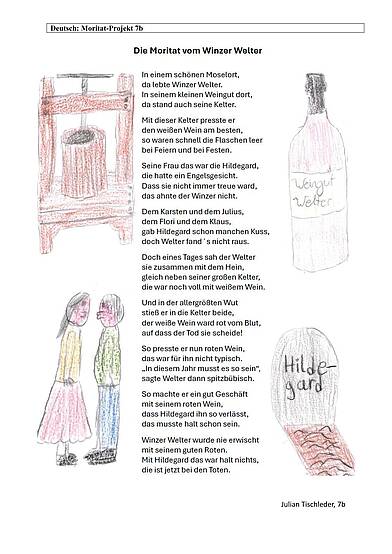 Deutsch: Moritat-Projekt 7b
Die Moritat vom Winzer Welter
In einem schönen Moselort,
da lebte Winzer Welter.
In seinem kleinen Weingut dort,
da stand auch seine Kelter.
Mit dieser Kelter presste er
den weißen Wein am besten,
so waren schnell die Flaschen leer
bei Feiern und bei Festen.
Seine Frau das war die Hildegard,
die hatte ein Engelsgesicht.
Dass sie nicht immer treue ward,
das ahnte der Winzer nicht.
Dem Karsten und dem Julius,
dem Flori und dem Klaus,
gab Hildegard schon manchen Kuss,
doch Welter fand´s nicht raus.
Doch eines Tages sah der Welter
sie zusammen mit dem Hein,
gleich neben seiner großen Kelter,
die war noch voll mit weißem Wein.
Und in der allergrößten Wut
stieß er in die Kelter beide,
der weiße Wein ward rot vom Blut,
auf dass der Tod sie scheide!
So presste er nun roten Wein,
das war für ihn nicht typisch.
„In diesem Jahr musst es so sein",
sagte Welter dann spitzbübisch.
So machte er ein gut Geschäft
mit seinem roten Wein,
dass Hildegard ihn so verlässt,
das musste halt schon sein.
Winzer Welter wurde nie erwischt
mit seinem guten Roten.
Mit Hildegard das war halt nichts,
die ist jetzt bei den Toten.
Weingut
Welter
Hilde-
gard
Julian Tischleder, 7b